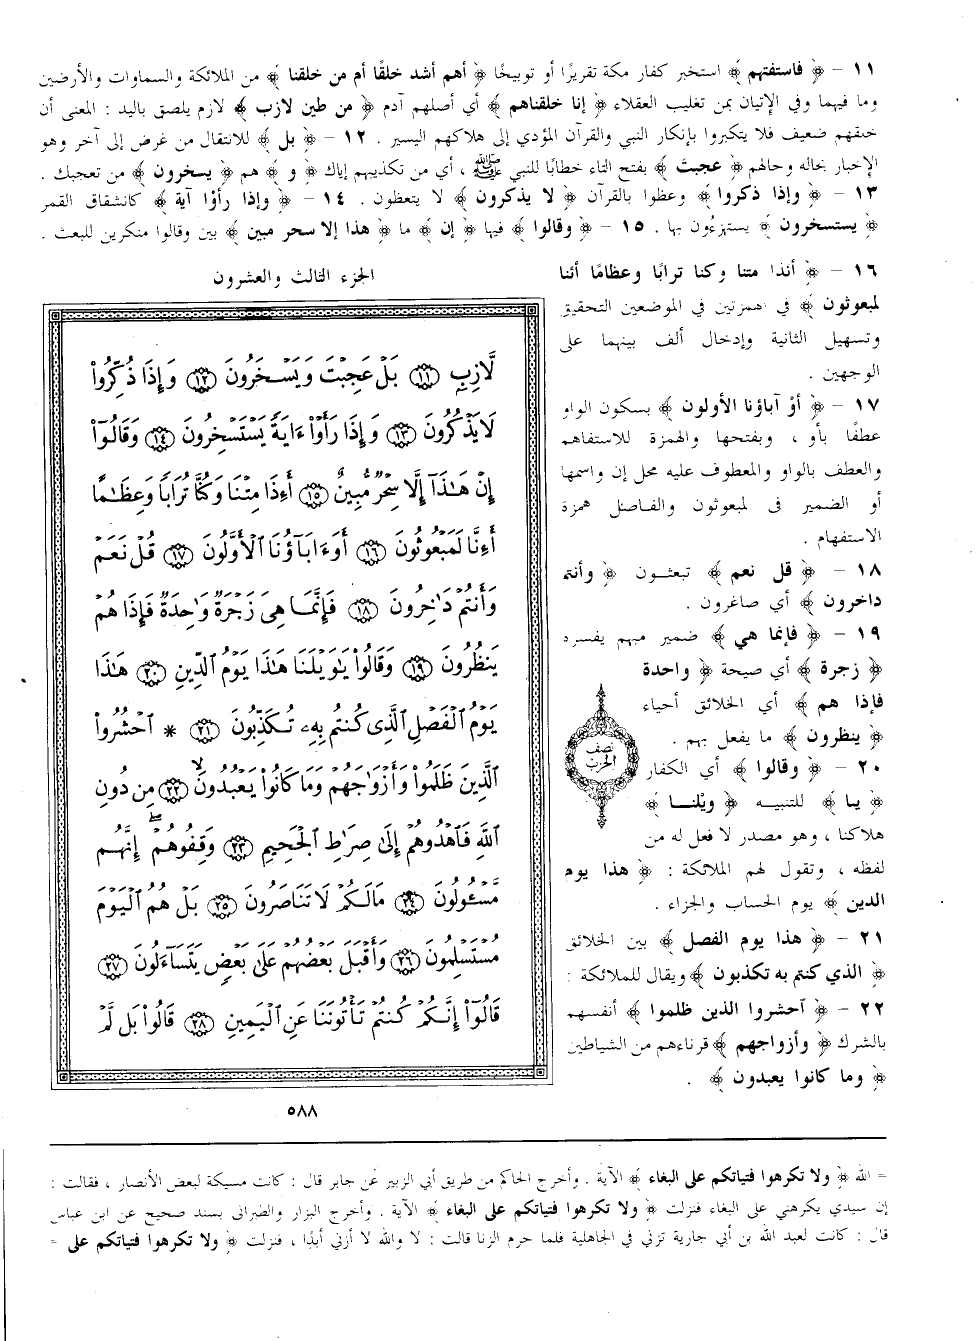 ١١ - ﴿ فاستفتهم ﴾ استخبر كفار مكة تقريرًا أو توبيخًا ﴿ أهم أشد خلقًا أم من خلقنا ﴾ من الملائكة والسماوات والأرضين
وما فيهما وفي الإتيان بمن تغليب العقلاء ﴿ إنا خلقناهم ﴾ أي أصلهم آدم ﴿ من طين لازب ﴾ لازم يلصق باليد : المعنى أن
خلقهم ضعيف فلا يتكبروا بإنكار النبي والقرآن المؤدي إلى هلاكهم اليسير . ١٢ - ﴿ بل ﴾ للانتقال من غرض إلى آخر وهو
الإخبار بحاله وحالهم ﴿ عجبتَ ﴾ بفتح التاء خطابًا للنبي ﷺ ، أي من تكذيبهم إياك ﴿ و ﴾ هم ﴿ يسخرون ﴾ من تعجبك .
١٣ - ﴿ وإذا ذكروا ﴾ وعظوا بالقرآن ﴿ لا يذكرون ﴾ لا يتعظون . ١٤ - ﴿ وإذا رأوْا آية ﴾ كانشقاق القمر
﴿ يستسخرون ﴾ يستهزءُون بها . ١٥ - ﴿ وقالوا ﴾ فيها ﴿ إن ﴾ ما ﴿ هذا إلا سحر مبين ﴾ بين وقالوا منكرين للبعث .
١٦ - ﴿ أئذا متنا وكنا ترابًا وعظامًا أئنا
لمبعوثون ﴾ في همزتين في الموضعين التحقيق
وتسهيل الثانية وإدخال ألف بينهما على
الوجهين .
١٧ - ﴿ أوْ آباؤنا الأولون ﴾ بسكون الواو
عطفًا بأو ، وبفتحها والهمزة للاستفهام
والعطف بالواو والمعطوف عليه محل إن واسمها
أو الضمير فى لمبعوثون والفاصل همزة
الاستفهام .
١٨ - ﴿ قل نعم ﴾ تبعثون ﴿ وأنتم
داخرون ﴾ أي صاغرون .
١٩ - ﴿ فإنما هي ﴾ ضمير مبهم يفسره
﴿ زجرة ﴾ أي صيحة ﴿ واحدة
فإذا هم ﴾ أي الخلائق أحياء
﴿ ينظرون ﴾ ما يفعل بهم .
٢٠ - ﴿ وقالوا ﴾ أي الكفار
﴿ يا ﴾ للتنبيه ﴿ ويْلنـا ﴾
هلاكنا ، وهو مصدر لا فعل له من
لفظه ، وتقول لهم الملائكة : ﴿ هذا يوم
الدين ﴾ يوم الحساب والجزاء .
٢١ - ﴿ هذا يوم الفصل ﴾ بين الخلائق
﴿ الذي كنتم به تكذبون ﴾ ويقال للملائكة :
٢٢ - ﴿ آحشروا الذين ظلموا ﴾ أنفسهم
بالشرك ﴿ وأزواجهم ﴾ قرناءهم من الشياطين
﴿ وما كانوا يعبدون ﴾ .
نصف
الحزب
الجزء الثالث والعشرون
لَّازِبٍ ۝١١ بَلْ عَجِبْتَ وَيَسْخَرُونَ ۝١٢ وَإِذَا ذُكِّرُواْ
لَا يَذْكُرُونَ ۝١٣ وَإِذَا رَأَوْاْ ءَايَةً يَسْتَسْخِرُونَ ۝١٤ وَقَالُوٓاْ
إِنْ هَـٰذَآ إِلَّا سِحْرٌ مُّبِينٌ ۝١٥ أَءِذَا مِتْنَا وَكُنَّا تُرَابًا وَعِظَـٰمًا
أَءِنَّا لَمَبْعُوثُونَ ۝١٦ أَوَءَابَآؤُنَا ٱلْأَوَّلُونَ ۝١٧ قُلْ نَعَمْ
وَأَنتُمْ دَٰخِرُونَ ۝١٨ فَإِنَّمَا هِىَ زَجْرَةٌ وَٰحِدَةٌ فَإِذَا هُمْ
يَنظُرُونَ ۝١٩ وَقَالُواْ يَـٰوَيْلَنَا هَـٰذَا يَوْمُ ٱلدِّينِ ۝٢٠ هَـٰذَا
يَوْمُ ٱلْفَصْلِ ٱلَّذِى كُنتُم بِهِۦ تُكَذِّبُونَ ۝٢١ * ٱحْشُرُواْ
ٱلَّذِينَ ظَلَمُواْ وَأَزْوَٰجَهُمْ وَمَا كَانُواْ يَعْبُدُونَ ۝٢٢ مِن دُونِ
ٱللَّهِ فَٱهْدُوهُمْ إِلَىٰ صِرَٰطِ ٱلْجَحِيمِ ۝٢٣ وَقِفُوهُمْ إِنَّهُم
مَّسْـُٔولُونَ ۝٢٤ مَا لَكُمْ لَا تَنَاصَرُونَ ۝٢٥ بَلْ هُمُ ٱلْيَوْمَ
مُسْتَسْلِمُونَ ۝٢٦ وَأَقْبَلَ بَعْضُهُمْ عَلَىٰ بَعْضٍ يَتَسَآءَلُونَ ۝٢٧
قَالُوٓاْ إِنَّكُمْ كُنتُمْ تَأْتُونَنَا عَنِ ٱلْيَمِينِ ۝٢٨ قَالُواْ بَل لَّمْ
٥٨٨
= الله ﴿ ولا تكرهوا فتياتكم على البغاء ﴾ الآية . وأخرج الحاكم من طريق أبي الزبير عن جابر قال : كانت مسيكة لبعض الأنصار ، فقالت :
إن سيدي يكرهني على البغاء فنزلت ﴿ ولا تكرهوا فتياتكم على البغاء ﴾ الآية . وأخرج البزار والطبرانى بسند صحيح عن ابن عباس
قال : كانت لعبد الله بن أبي جارية تزني في الجاهلية فلما حرم الزنا قالت : لا والله لا أزني أبدًا ، فنزلت ﴿ ولا تكرهوا فتياتكم على =